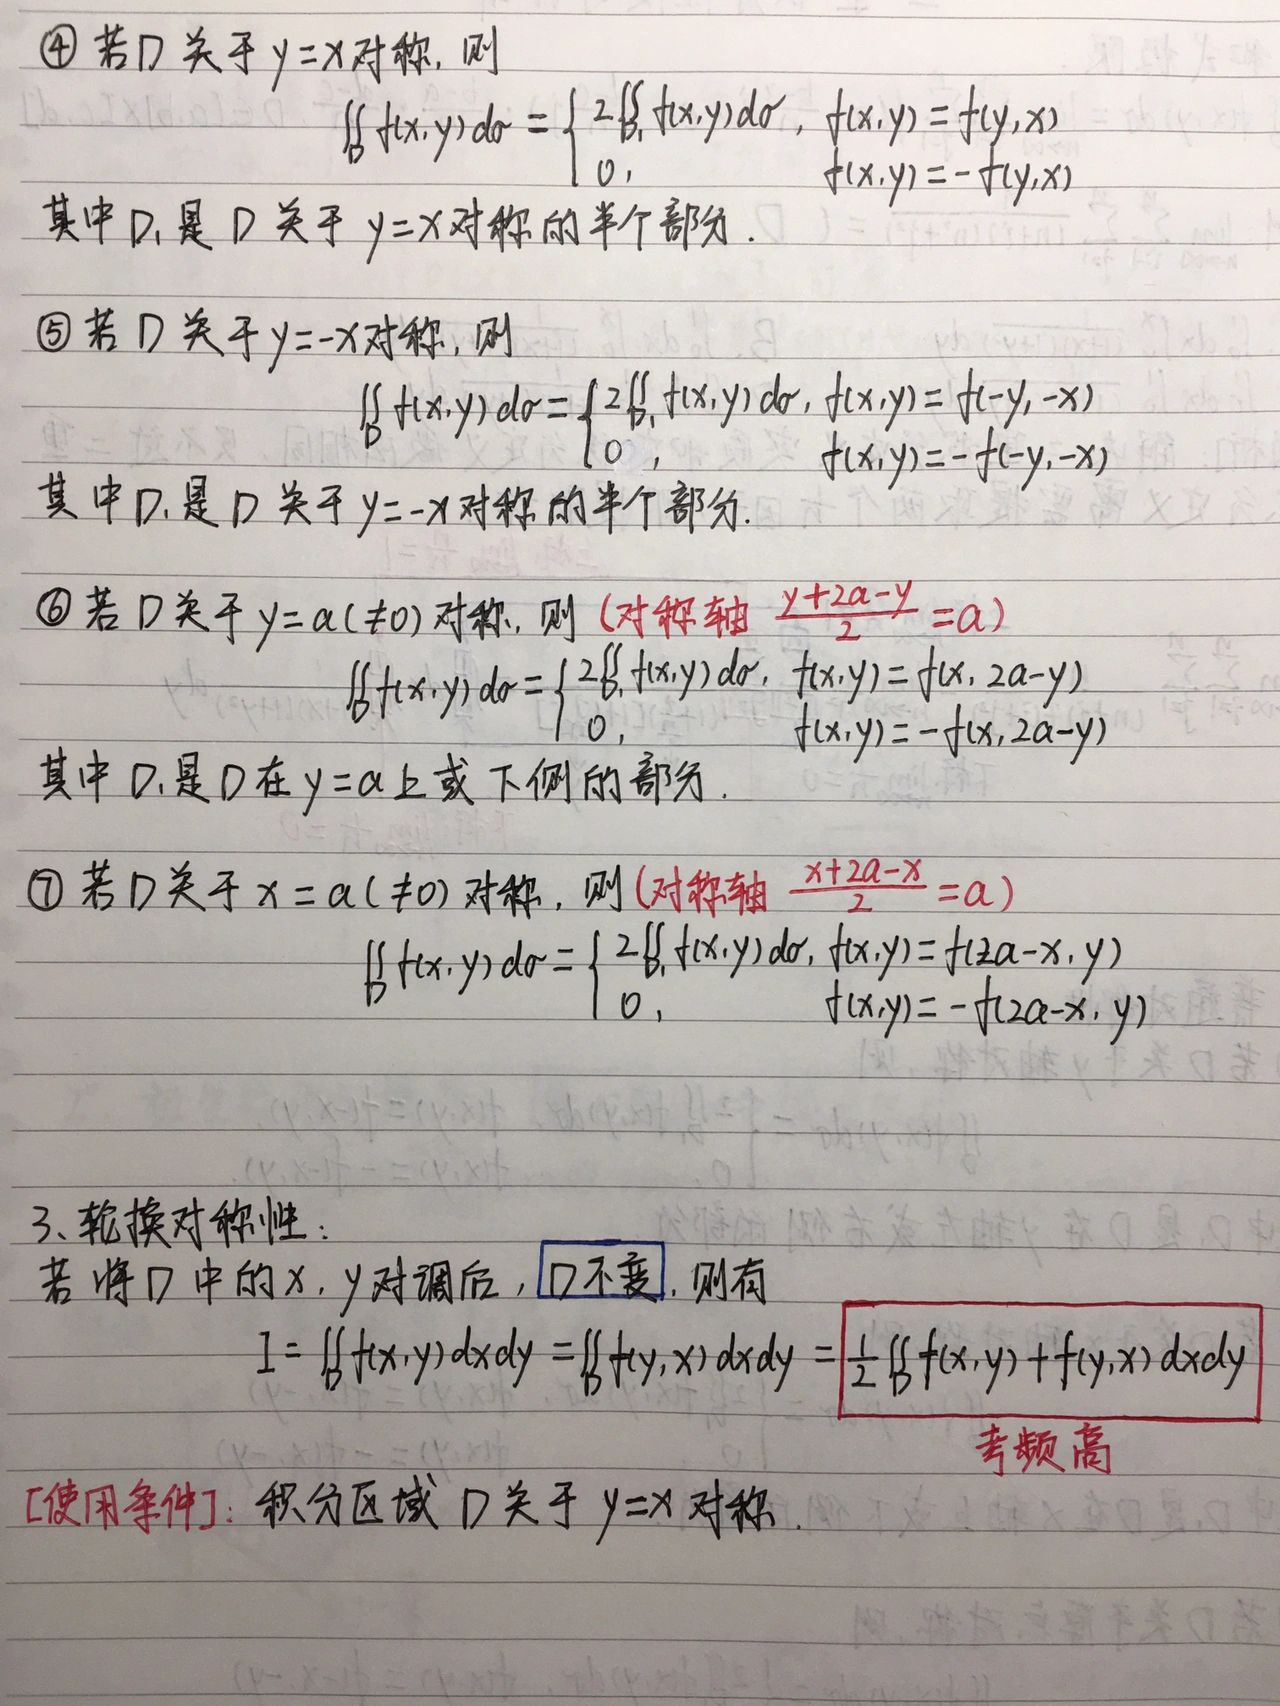 ④ 若D关于 y=x对称, 则
∬_D f(x,y)dσ = { 2∬_{D₁} f(x,y)dσ, f(x,y)=f(y,x)
0, f(x,y)=-f(y,x)
其中D₁是D关于 y=x对称的半个部分.
⑤ 若D关于 y=-x对称, 则
∬_D f(x,y)dσ = { 2∬_{D₁} f(x,y)dσ, f(x,y)=f(-y,-x)
0, f(x,y)=-f(-y,-x)
其中D₁是D关于 y=-x对称的半个部分.
⑥ 若D关于 y=a(≠0)对称, 则 (对称轴 (y+2a-y)/2 =a)
∬_D f(x,y)dσ = { 2∬_{D₁} f(x,y)dσ, f(x,y)=f(x,2a-y)
0, f(x,y)=-f(x,2a-y)
其中D₁是D在 y=a上或下侧的部分.
⑦ 若D关于 x=a(≠0)对称, 则 (对称轴 (x+2a-x)/2 =a)
∬_D f(x,y)dσ = { 2∬_{D₁} f(x,y)dσ, f(x,y)=f(2a-x,y)
0, f(x,y)=-f(2a-x,y)
3、轮换对称性:
若将D中的x,y对调后, D不变, 则有
I=∬_D f(x,y)dxdy=∬_D f(y,x)dxdy = 1/2 ∬_D f(x,y)+f(y,x)dxdy
考频高
[使用条件]: 积分区域D关于 y=x对称.